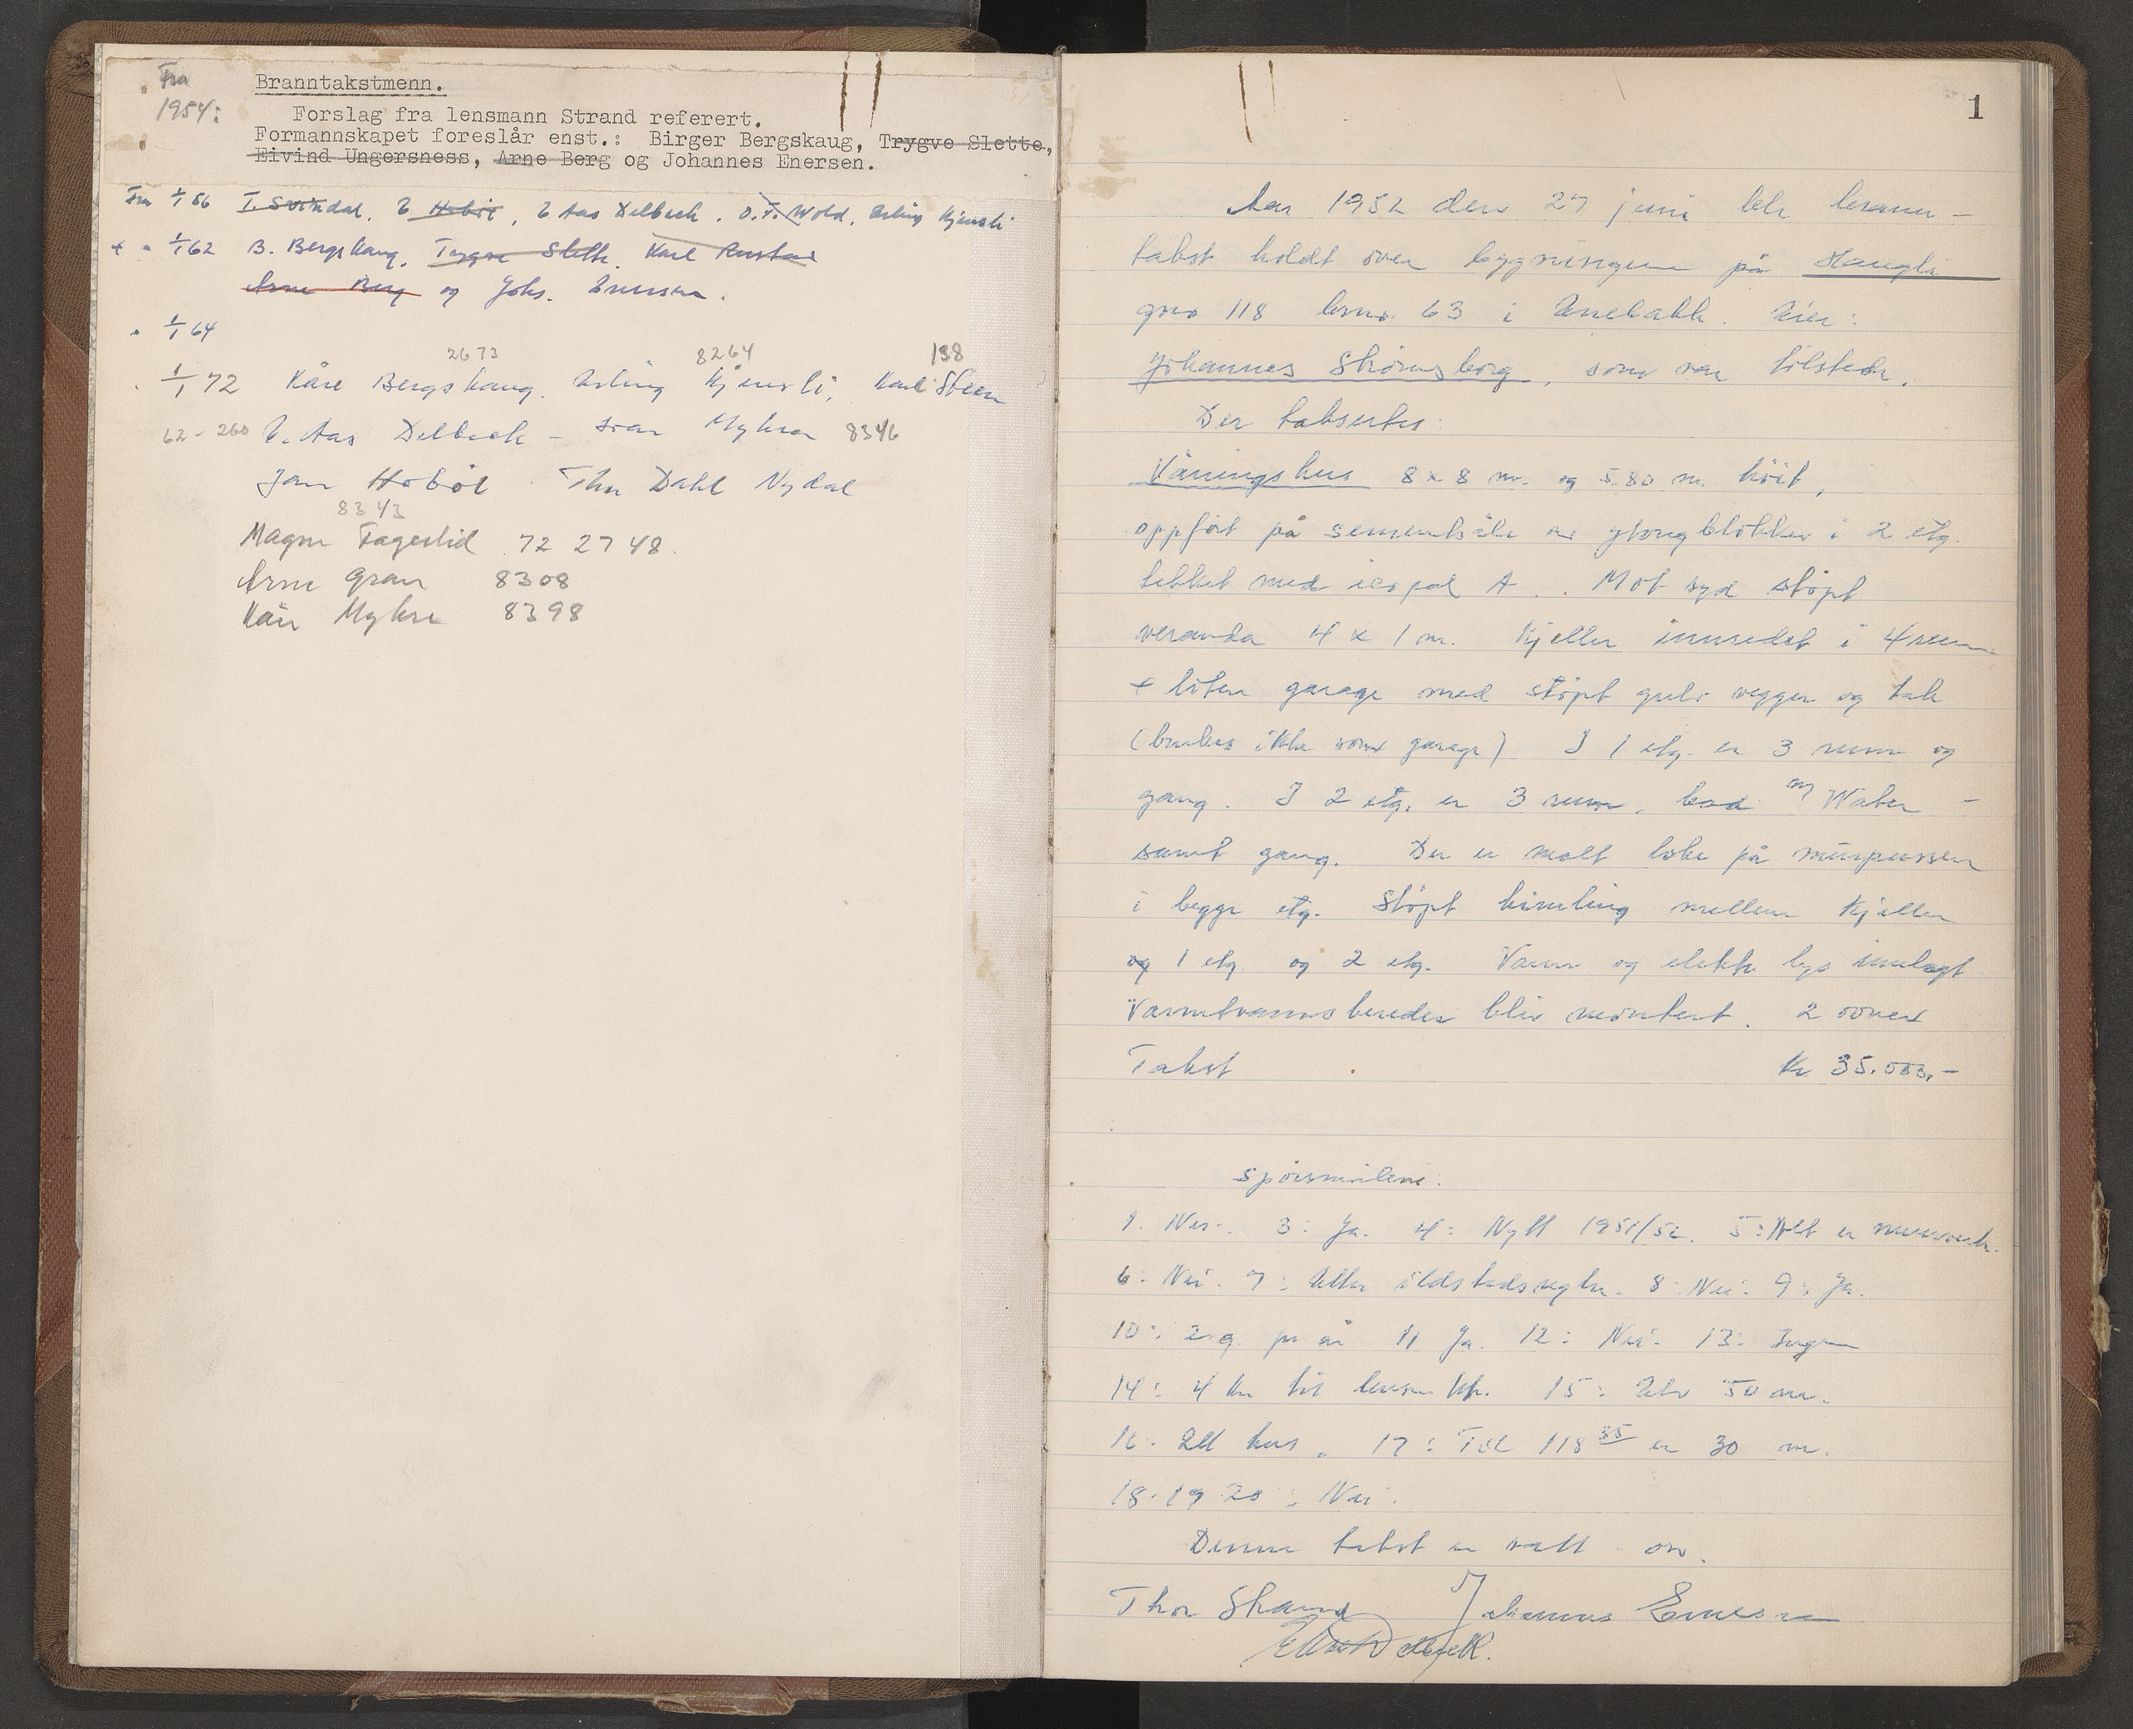 Fra
1954:
Branntakstmenn.
Forslag fra lensmann Strand referert.
Formannskapet foreslår enst.: Birger Bergskaug, Trygve Slette,
Eivind Ungersness, Arne Berg og Johannes Enersen.
Fra 1/1 56 T. Svindal, E Hobøl, E Aas Delbeck, O.F. Wold, Erling Kjensli
1/1 62 B. Bergskaug, Trygve Slette, Karl Rustad
Arne Berg og Johs. Enersen.
" 1/1 64
2673 8264 138
1/1 72 Kåre Bergskaug, Erling Kjensli, Karl Steen
62-260 E. Aas Delbeck - Ivar Myhrer 8346
Jan Hobøl Thu Dahl Nydal
8343
Magne Fagerlid 72 27 48.
Arne Gran 8308
Kåre Myhre 8398
1
Aar 1952 den 27 juni ble brann-
takst holdt over bygningene på Haugli
gno 118 brno. 63 i Enebakk. Eier:
Johannes Strømsborg, som var tilstede.
Der taksertes:
Våningshus 8 x 8 m. og 5.80 m. höit,
oppfört på sementsåle av ytongblokker i 2 etg.
tekket med icopal A. Mot syd støpt
veranda 4 x 1 m. Kjeller innredet i 4 rum
+ liten garage med støpt gulv vegger og tak
(brukes ikke som garage) I 1 etg. er 3 rum og
gang. I 2 etg. er 3 rum, bad m/ Water-
samt gang. Der er malt på murpussen
i begge etg. Støpt himling mellem kjeller
og 1 etg. og 2 etg. Vann og elektr lys innlagt
Varmtvannsbereder blir montert. 2 ovner
Takst Kr 35.000.-
Spörsmålene:
1. Nei. 3: Ja. 4: Nytt 1951/52. 5: Alt er murverk.
6: Nei. 7: Etter ildstedsregler. 8: Nei. 9: Ja.
10: 2 g. pr år 11 Ja. 12: Nei. 13: Ingen
14: 4 km til 15: Elv 50 m.
16. Ett hus. 17: Til 118 35 er 30 m.
18-19-20: Nei.
Denne takst er vedtatt osv.
Thor Strand Johannes Enersen
E Aas Delbeck.